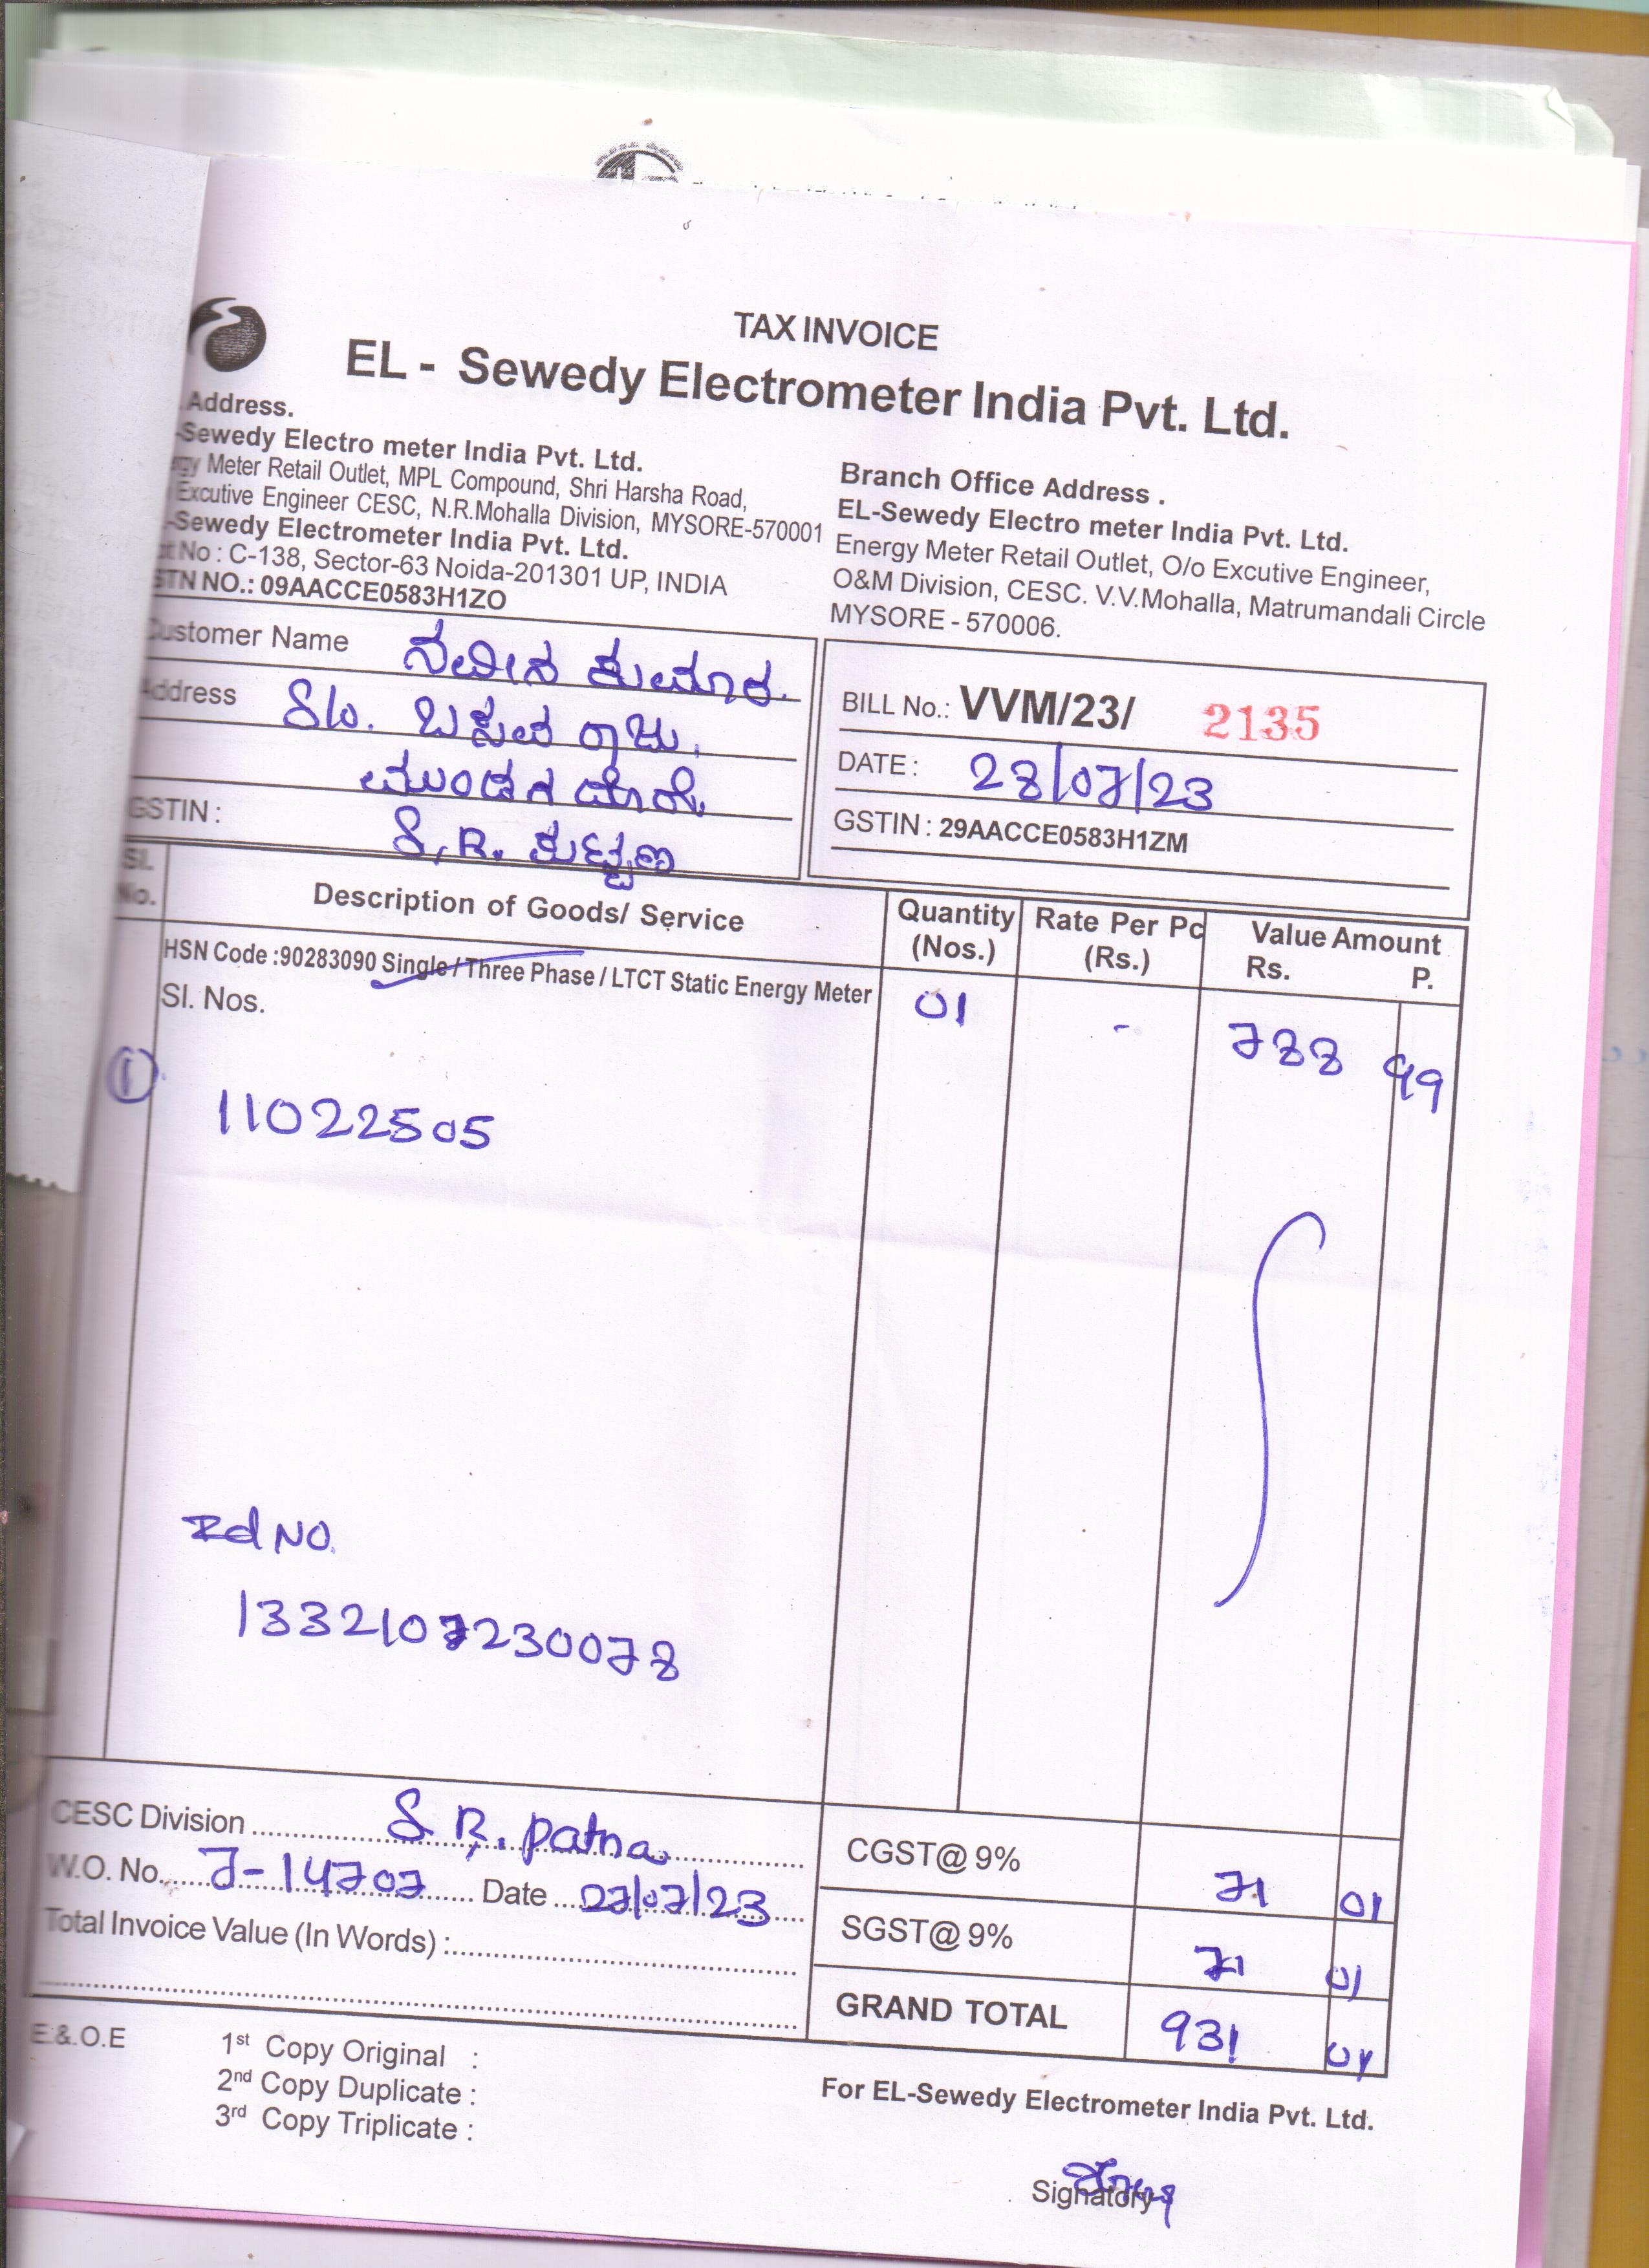 TAX INVOICE
EL - Sewedy Electrometer India Pvt. Ltd.
Address.
-Sewedy Electro meter India Pvt. Ltd.
gy Meter Retail Outlet, MPL Compound, Shri Harsha Road,
Excutive Engineer CESC, N.R.Mohalla Division, MYSORE-570001
-Sewedy Electrometer India Pvt. Ltd.
No : C-138, Sector-63 Noida-201301 UP, INDIA
STN NO.: 09AACCE0583H1ZO
Branch Office Address .
EL-Sewedy Electro meter India Pvt. Ltd.
Energy Meter Retail Outlet, O/o Excutive Engineer,
O&M Division, CESC. V.V.Mohalla, Matrumandali Circle
MYSORE - 570006.
Customer Name ನವೀನ ಕುಮಾರ.
Address S/o. ಬಸವ ರಾಜು.
GSTIN : S.R.
BILL No.: VVM/23/ 2135
DATE : 28/07/23
GSTIN : 29AACCE0583H1ZM
Sl. No. Description of Goods/ Service Quantity (Nos.) Rate Per Pc (Rs.) Value Amount Rs. P.
HSN Code :90283090 Single / Three Phase / LTCT Static Energy Meter 01 - 788 99
Sl. Nos.
① 11022505
Id NO.
1332107230078
CESC Division S.R. patna
W.O. No. J-14707 Date 27/07/23
Total Invoice Value (In Words) :
CGST@ 9% 71 01
SGST@ 9% 71 01
GRAND TOTAL 931 01
E.&.O.E
1st Copy Original :
2nd Copy Duplicate :
3rd Copy Triplicate :
For EL-Sewedy Electrometer India Pvt. Ltd.
Signatory